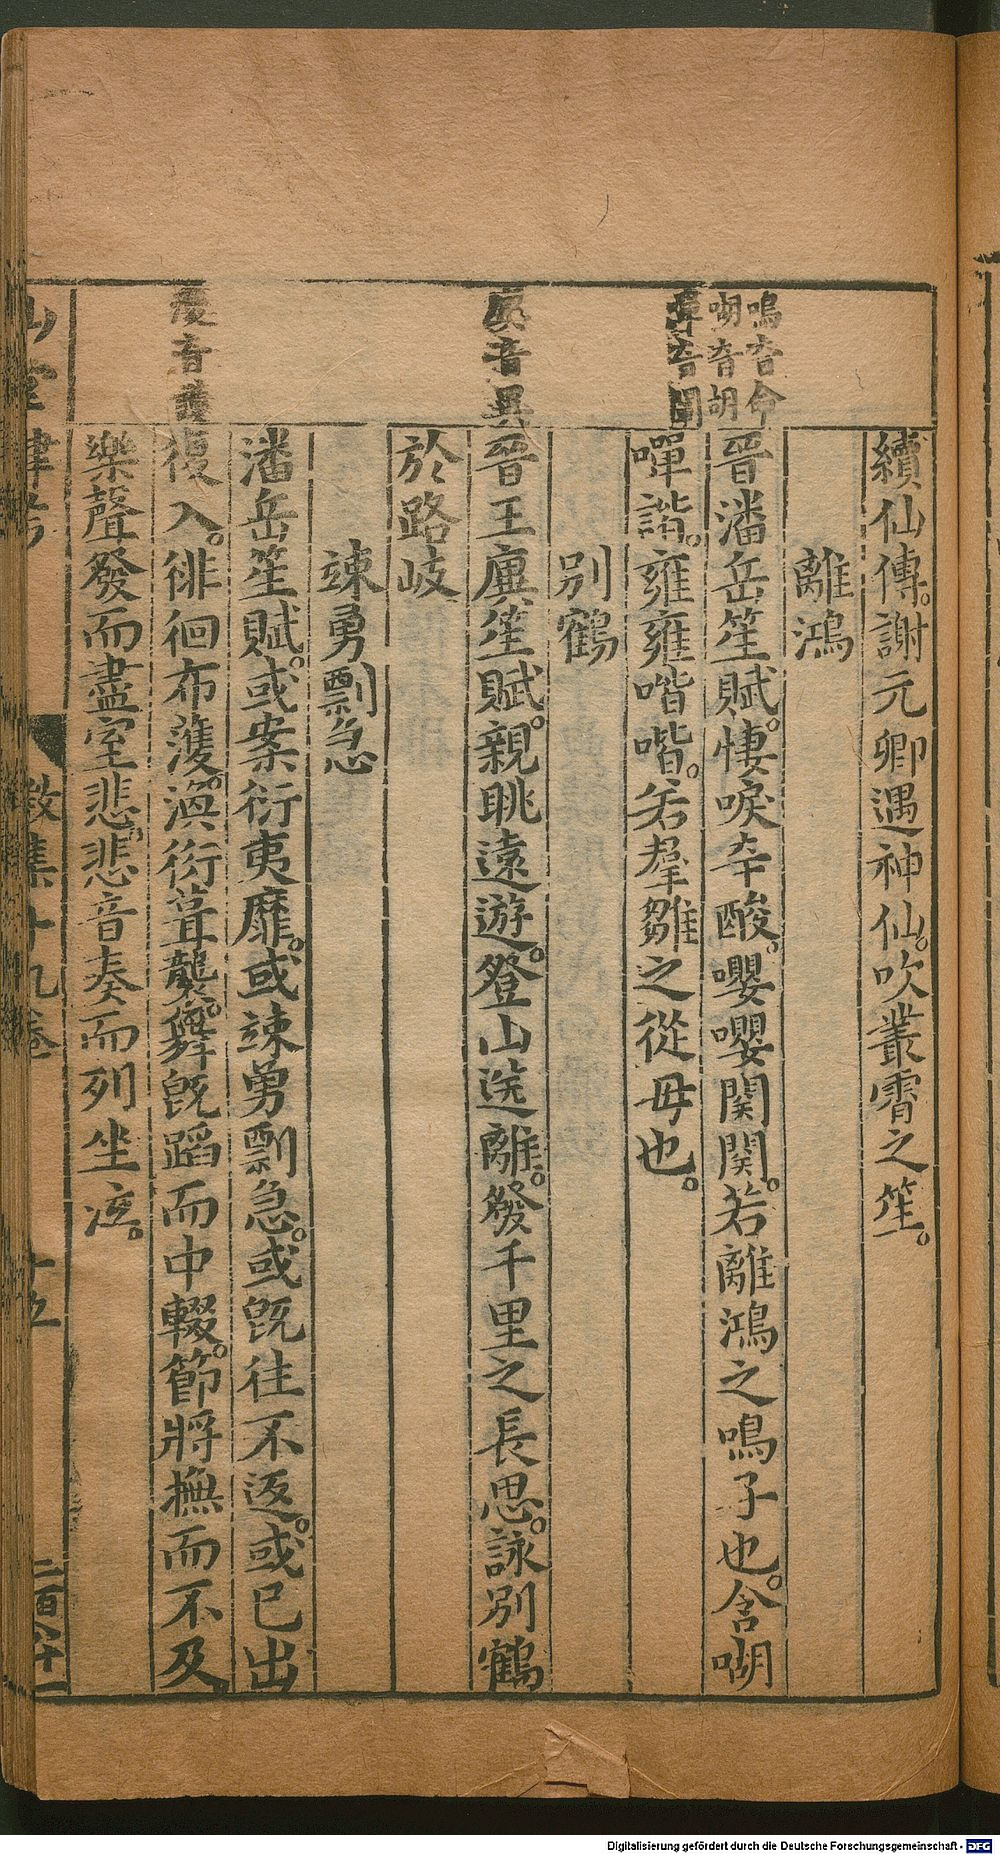 續仙傳。謝元卿遇神仙。吹叢霄之笙。
離鴻
晉潘岳笙賦。悽唳辛酸。嚶嚶関関。若離鴻之鳴子也。含㗅
嘽諧。雍雍喈喈。若羣雛之從母也。
別鶴
晉王廙笙賦。親眺遠遊。登山送離。發千里之長思。詠別鶴
於路岐
竦勇剽急
潘岳笙賦。或桉衍夷靡。或竦勇剽急。或旣往不返。或已出
復入。徘徊布濩。渙衍葺襲。舞旣蹈而中輟。節將撫而不及。
樂聲發而盡室悲。悲音奏而列坐泣。
鳴音命
㗅音胡
嘽音闡
廙音異
濩音護
十九卷
十五
二百八十一
Digitalisierung gefördert durch die Deutsche Forschungsgemeinschaft - DFG